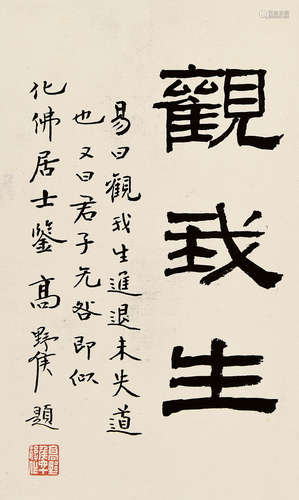 觀我生
易曰觀我生進退未失道
也又曰君子无咎即似
化佛居士鑒高野侯題